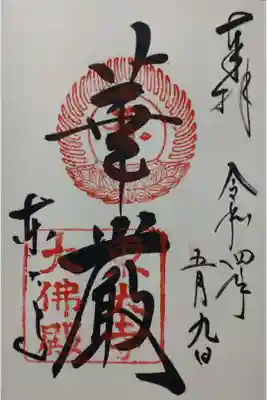 奉拝
令和四年
五月九日
華厳
東大寺
大佛殿